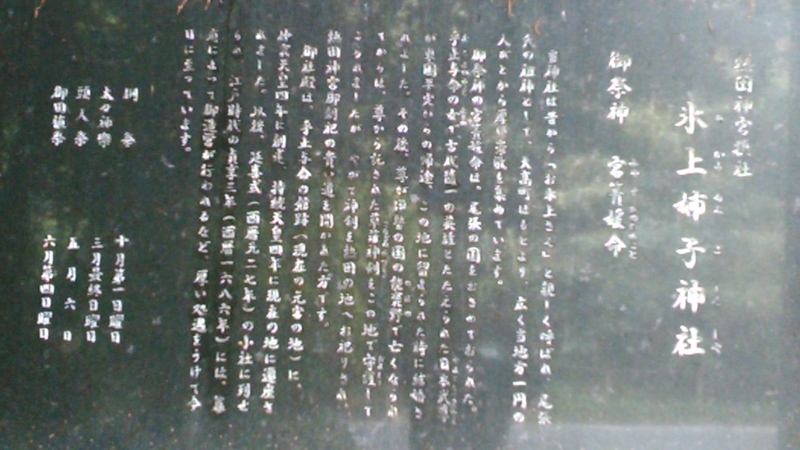 熱田神宮摂社
氷上姉子神社
ひかみあねごじんじゃ
御祭神　宮簀媛命
当神社は昔から「お氷上さん」と親しく呼ばれ、尾張
氏の祖神として、大高町はもとより、広く当地方一円の
人びとから厚い崇敬を集めています。
御祭神の宮簀媛命は、尾張の国をおさめておられた
乎止与命の女で古代随一の英雄とたたえられた日本武尊
が東国平定からの帰途、この地に留まられた時に結婚さ
れました。その後、尊が伊勢の国の能褒野で亡くなられ
てからは、尊から託された草薙神剣をこの地で守護して
こられましたが、やがて神剣を熱田の地へお祀りされ
熱田神宮御創祀の貴い道を開かれた方です。
御社殿は、乎止与命の館跡（現在の元宮の地）に、
仲哀天皇四年に創建、持統天皇四年に現在の地に遷座さ
れました。以後、延喜式（西暦九二七年）の小社に列せ
られ、江戸時代の貞享三年（西暦一六八六年）には、幕
府によって御造営がおこなわれるなど、厚い処遇をうけて今
日に至っています。
例祭　十月第一日曜日
太々神楽　三月最終日曜日
頭人祭　五月六日
御田植祭　六月第四日曜日